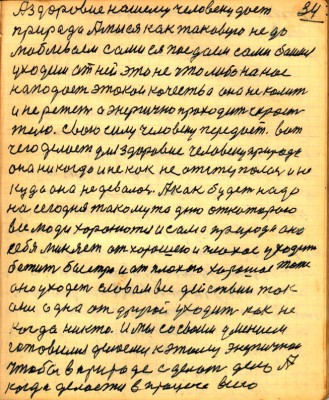 34
А здоровие нашему человеку дает
природа А мы ся как таковую не до
любливаем сами ся поедаем сами
уходим от ней это не что либо на нас
нападает этоκα качества она не колит
и не режет а энергично проходит скрозь
тело. Свою силу человеку передает. Вот
чего делает для здоровие человеку природа
она никогда и не как не отступалась и не
куда она не девалась. А как будет надо
на сегодня такому то дню от которого
все люди хоронются и сама природа она
себя меняет от хорошего и плохое уходит
бежит быстро и от плохого хорошое тоже
оно уходит словам все действии так
они одна от другой уходит как не
когда никто. И мы со своим умением
готовились физически к этому энергично
чтобы в природе сделать дело А
когда делается в процессе всего